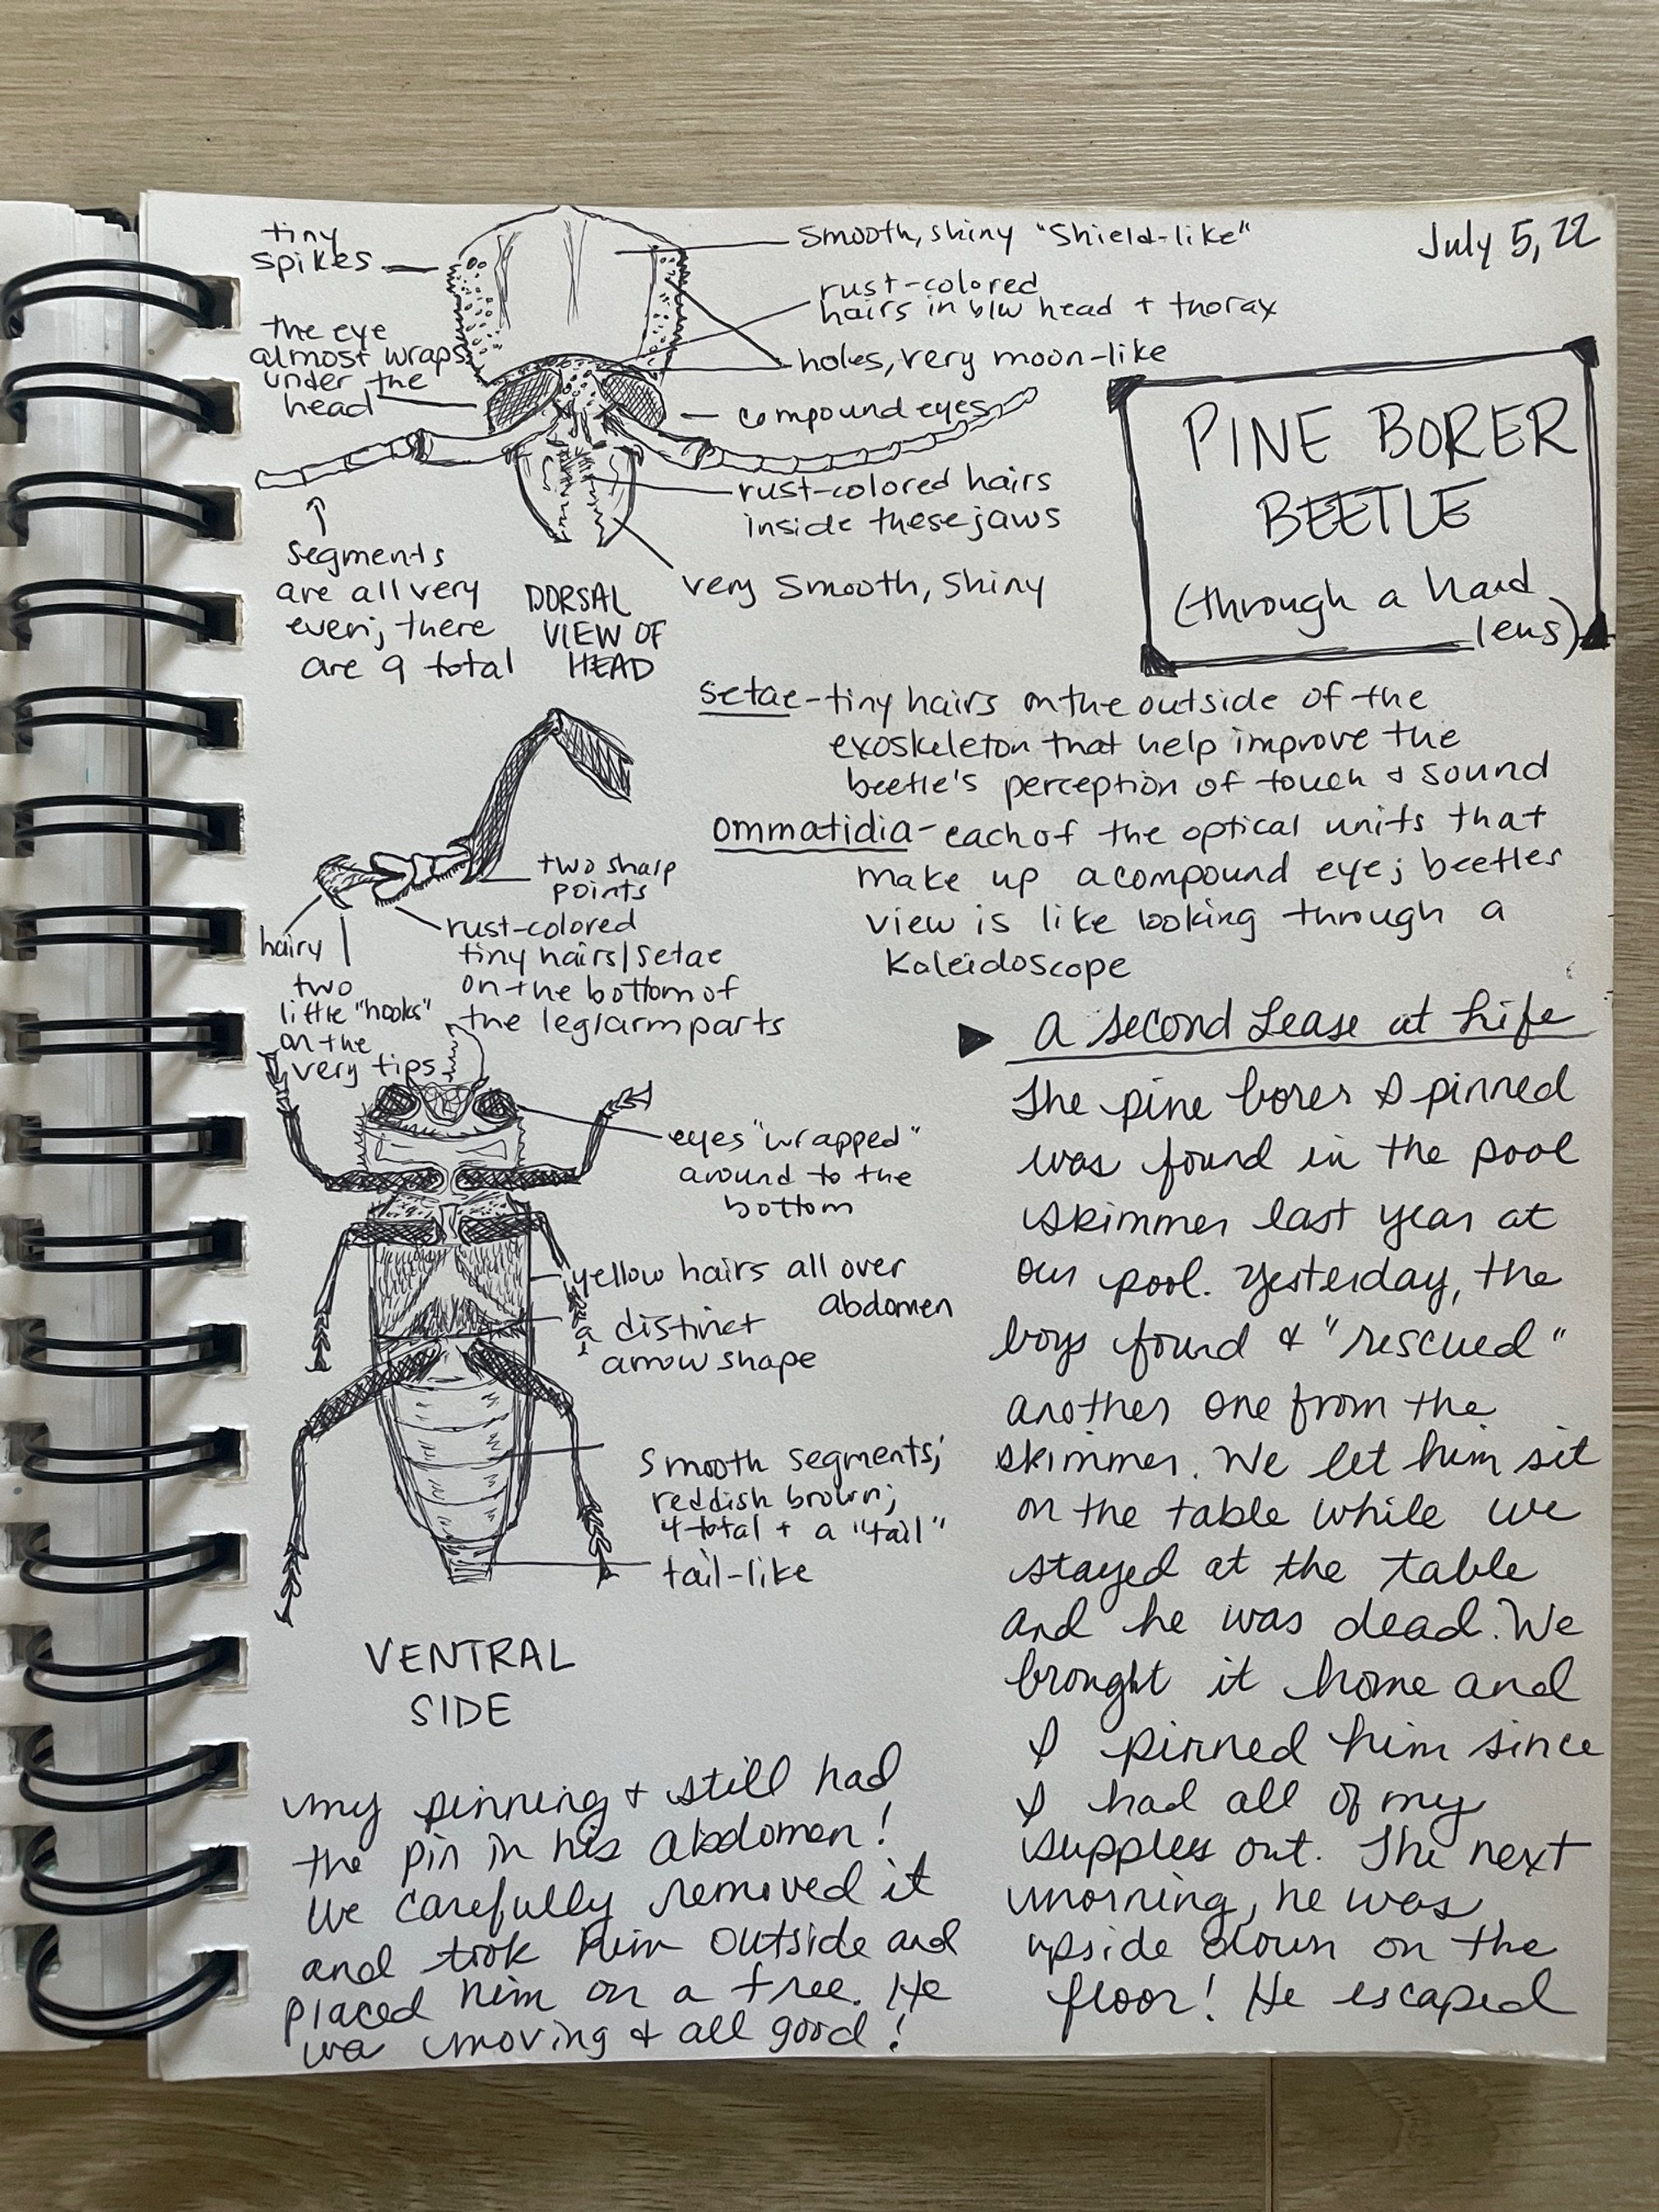 July 5, 22
PINE BORER
BEETLE
(through a hand
lens)
tiny
spikes
Smooth, shiny "Shield-like"
rust-colored
hairs in b/w head + thorax
the eye
almost wraps
under the
head
holes, very moon-like
compound eyes
rust-colored hairs
inside these jaws
very smooth, shiny
segments
are all very
even; there
are 9 total
DORSAL
VIEW OF
HEAD
setae - tiny hairs on the outside of the
exoskeleton that help improve the
beetle's perception of touch & sound
ommatidia - each of the optical units that
make up a compound eye; beetles
view is like looking through a
Kaleidoscope
two sharp
points
hairy
rust-colored
tiny hairs/setae
on the bottom of
the leg/arm parts
two
little "hooks"
on the
very tips
eyes "wrapped"
around to the
bottom
yellow hairs all over
abdomen
a distinct
arrow shape
Smooth segments;
reddish brown;
4 total + a "tail"
tail-like
VENTRAL
SIDE
▶ A Second Lease at Life
The pine borer I pinned
was found in the pool
skimmer last year at
our pool. Yesterday, the
boys found & "rescued"
another one from the
skimmer. We let him sit
on the table while we
stayed at the table
and he was dead. We
brought it home and
I pinned him since
I had all of my
supples out. The next
morning, he was
upside down on the
floor! He escaped
my pinning & still had
the pin in his abdomen!
We carefully removed it
and took him outside and
placed him on a tree. He
wa moving & all good!